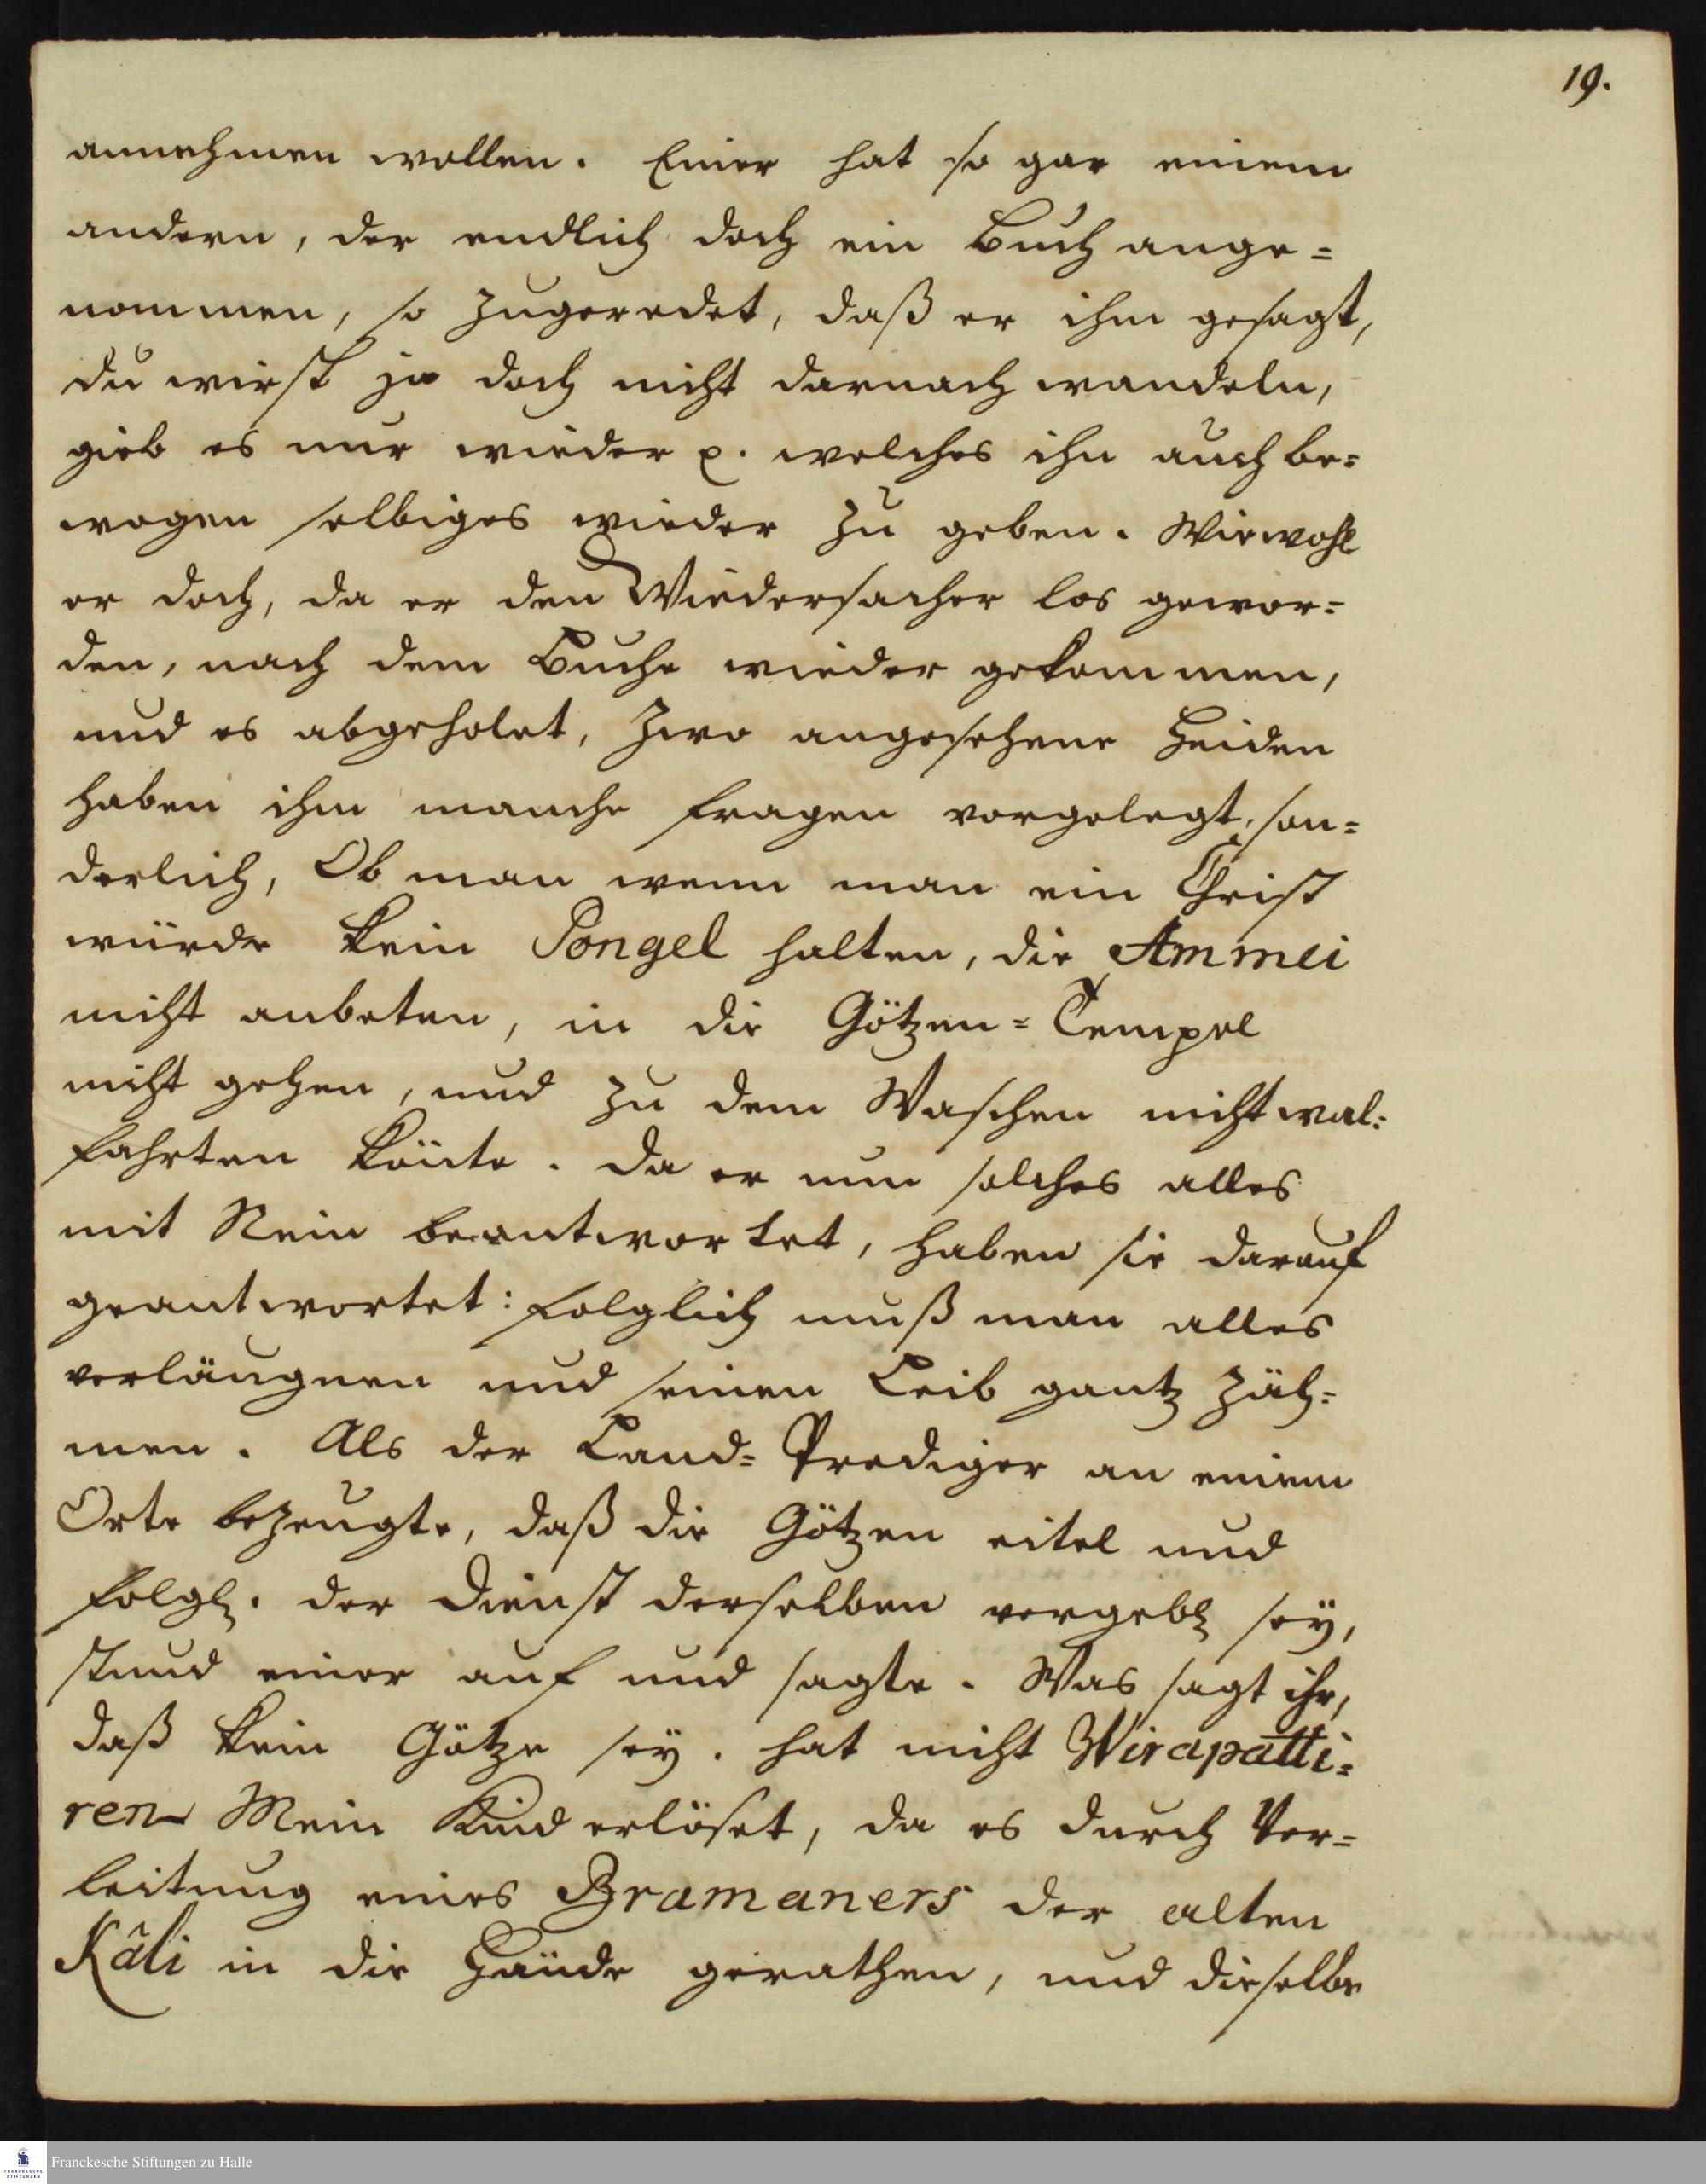 19.
annehmen wollen. Einer hat so gar einem
andern, der endlich doch ein Buch ange=
nommen, so zugeredet, daß er ihm gesagt,
du wirst ja doch nicht darnach wandeln,
gieb es nur wieder p. welches ihn auch be=
wogen selbiges wieder zu geben. Wiewohl
er doch, da er den Wiedersacher los gewor=
den, nach dem Buche wieder gekommen,
und es abgeholet, Zwo angesehene Heiden
haben ihm manche Fragen vorgelegt, son=
derlich, Ob man wenn man ein Christ
würde kein Pongel halten, die Ammei
nicht anbeten, in die Götzen=Tempel
nicht gehen, und zu dem Waschen nicht wal=
fahrten könte. da er nun solches alles
mit Nein beantwortet, haben sie darauf
geantwortet: folglich muß man alles
verläugnen und seinen Leib gantz zäh=
men. Als der Land=Prediger an einem
Orte bezeugte, daß die Götzen eitel und
folgl. der Dienst derselben vergebl sey,
stund einer auf und sagte. Was sagt ihr,
daß kein Götze sey. hat nicht Wirapatti=
ren Mein Kind erlöset, da es durch Ver=
leitung eines Bramaners der alten
Kâli in die Hände gerathen, und dieselbe
Franckesche Stiftungen zu Halle
FRANCKESCHE STIFTUNGEN